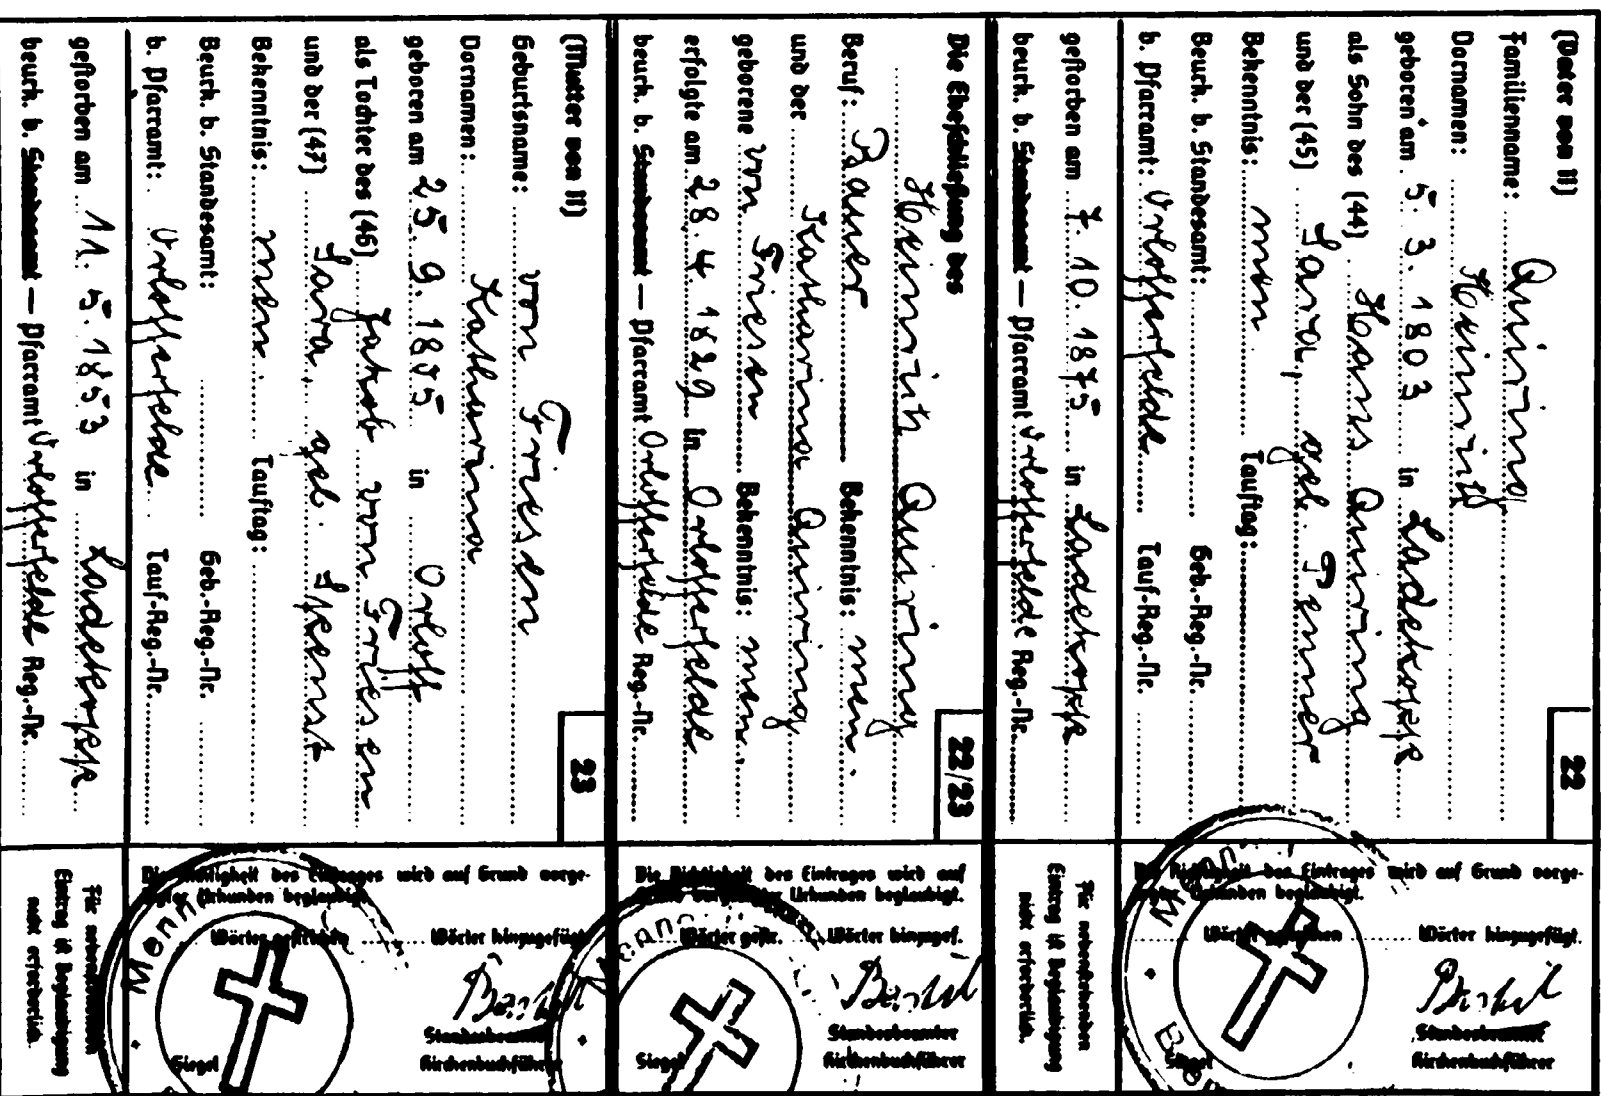 (Vater von 11)
22
Familienname: Quiring
Vornamen: Heinrich
geboren am 5. 3. 1803 in Ladekopp
als Sohn des (44) Hans Quiring
und der (45) Sara, geb. Penner
Bekenntnis: men Tauftag:
Beurk. b. Standesamt: Geb.-Reg.-Nr.
b. Pfarramt: Orlofferfelde Tauf-Reg.-Nr.
gestorben am 7. 10. 1875 in Ladekopp
beurk. b. Standesamt — Pfarramt Orlofferfelde Reg.-Nr.
Die Richtigkeit des Eintrages wird auf Grund vorge-
legter Urkunden beglaubigt.
Wörter gestrichen Wörter hinzugefügt.
Siegel
Standesbeamter
Kirchenbuchführer
Für nebenstehenden
Eintrag ist Beglaubigung
nicht erforderlich.
Die Eheschließung des
22/23
Heinrich Quiring
Beruf: Bauer Bekenntnis: men.
und der Katharina Quiring
geborene von Friesen Bekenntnis: men.
erfolgte am 28. 4. 1829 in Orlofferfelde
beurk. b. Standesamt — Pfarramt Orlofferfelde Reg.-Nr.
Die Richtigkeit des Eintrages wird auf
Grund vorgelegter Urkunden beglaubigt.
Wörter gestr. Wörter hinzugef.
Siegel
Standesbeamter
Kirchenbuchführer
(Mutter von 11)
23
Geburtsname: von Friesen
Vornamen: Katharina
geboren am 25. 9. 1805 in Orloff
als Tochter des (46) Jakob von Friesen
und der (47) Sara, geb.
Bekenntnis: men. Tauftag:
Beurk. b. Standesamt: Geb.-Reg.-Nr.
b. Pfarramt: Orlofferfelde Tauf-Reg.-Nr.
gestorben am 11. 5. 1853 in Ladekopp
beurk. b. Standesamt — Pfarramt Orlofferfelde Reg.-Nr.
Die Richtigkeit des Eintrages wird auf Grund vorge-
legter Urkunden beglaubigt.
Wörter gestrichen Wörter hinzugefügt
Siegel
Standesbeamter
Kirchenbuchführer
Für nebenstehenden
Eintrag ist Beglaubigung
nicht erforderlich.